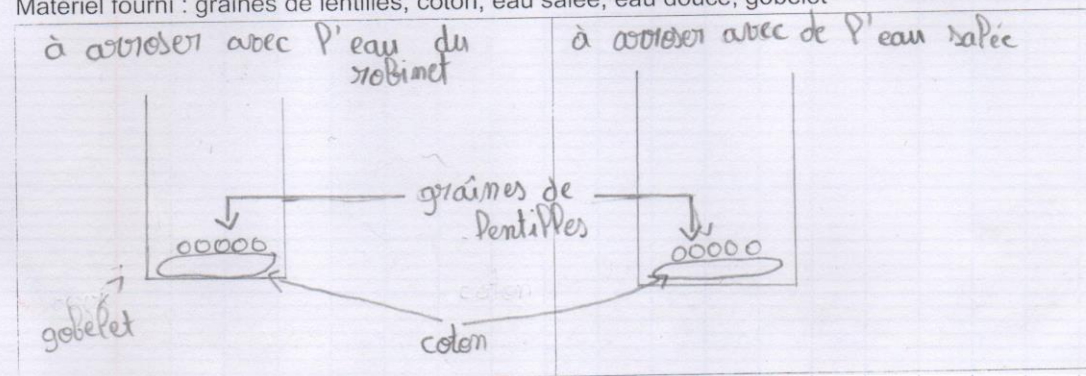 Matériel fourni : graines de lentilles, coton, eau salée, eau douce, gobelet
à arroser avec l'eau du
robinet
à arroser avec de l'eau salée
graines de
lentilles
gobelet
coton
coton